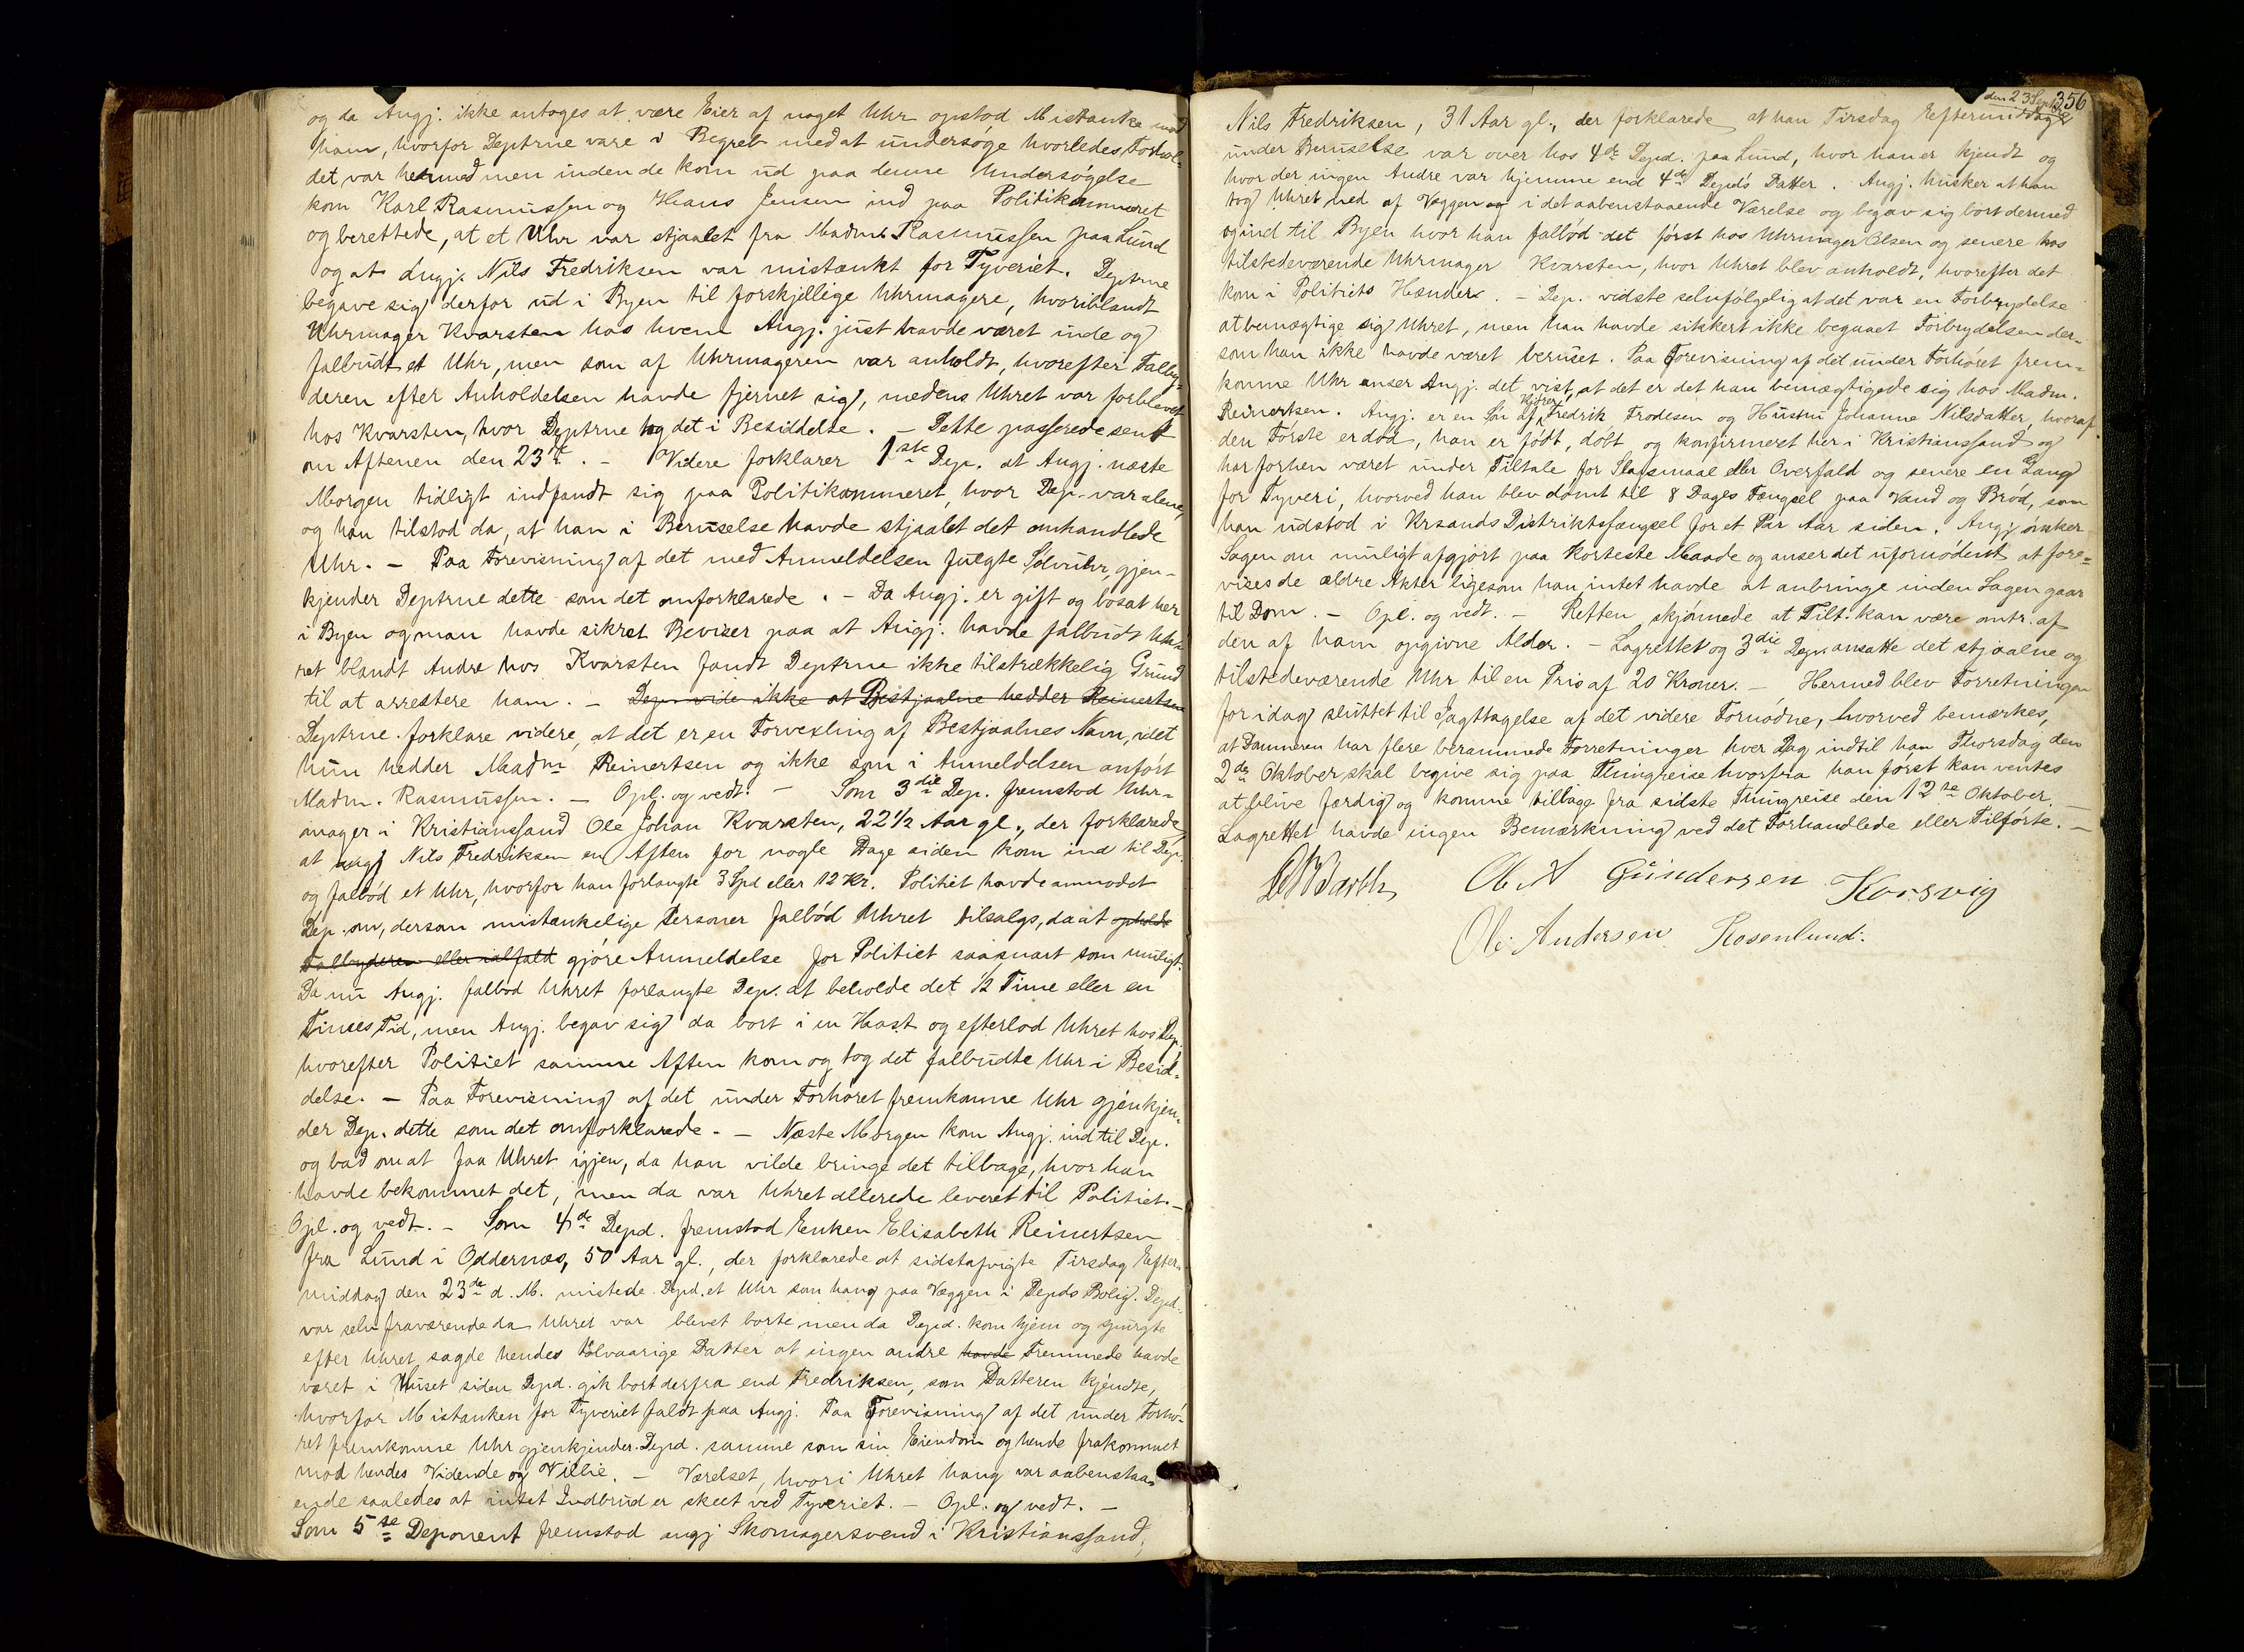 og da Angj. ikke antoges at være Eier af noget Uhr opstod Mistanke mod
ham, hvorfor Deptrne vare i Begreb med at undersøge hvorledes Forhol-
det var hermed men inden de kom ud paa denne Undersøgelse
kom Karl Rasmussen og Hans Jensen ind paa Politikammeret
og berettede, at et Uhr var stjaalet fra Madm. Rasmussen paa Lund
og at Angj. Nils Fredriksen var mistænkt for Tyveriet. Deptrne
begave sig derfor ud i Byen til forskjellige Uhrmagere, hvoriblandt
Uhrmager Kvarsten hos hvem Angj. just havde været inde og
falbudt et Uhr, men som af Uhrmageren var anholdt, hvorefter Falby-
deren efter Anholdelsen havde fjernet sig, medens Uhret var forblevet
hos Kvarsten, hvor Deptrne tog det i Besiddelse. — Dette passerede sent
om Aftenen den 23de. — Videre forklarer 1ste Dep. at Angj. næste
Morgen tidligt indfandt sig paa Politikammeret, hvor Dep. var alene,
og han tilstod da, at han i Beruselse havde stjaalet det omhandlede
Uhr. — Paa Forevisning af det med Anmeldelsen fulgte Sølvuhr, gjen-
kjender Deptrne dette som det omforklarede. — Da Angj. er gift og bosat her
i Byen og man havde sikret Beviser paa at Angj. havde falbudt Uh-
ret blandt Andre hos Kvarsten fandt Deptrne ikke tilstrækkelig Grund
til at arrestere ham. — Dep. vide ikke at Bestjaalne hedder Reinertsen
Deptrne forklare videre, at det er en Forvexling af Bestjaalnes Navn, idet
hun hedder Madm Reinertsen og ikke som i Anmeldelsen anført
Madm. Rasmussen. — Opl. og vedt. — Som 3die Dep. fremstod Uhr-
mager i Kristianssand Ole Johan Kvarsten, 22½ Aar gl., der forklarede
at Angj Nils Fredriksen en Aften for nogle Dage siden kom ind til Dep.
og falbød et Uhr, hvorfor han forlangte 3 Spd eller 12 Kr. Politiet havde anmodet
Dep. om, dersom mistænkelige Personer falbød Uhret tilsalgs, da at opholde
Falbyderen eller ialfald gjøre Anmeldelse for Politiet saasnart som muligt.
Da nu Angj. falbød Uhret forlangte Dep. at beholde det ½ Time eller en
Times Tid, men Angj. begav sig da bort i en Hast og efterlod Uhret hos Dep.
hvorefter Politiet samme Aften kom og tog det falbudte Uhr i Besid-
delse. — Paa Forevisning af det under Forhøret fremkomne Uhr gjenkjen-
der Dep. dette som det omforklarede. — Næste Morgen kom Angj. ind til Dep.
og bad om at faa Uhret igjen, da han vilde bringe det tilbage, hvor han
havde bekommet det, men da var Uhret allerede leveret til Politiet. —
Opl. og vedt. — Som 4de Depd. fremstod Enken Elisabeth Reinertsen
fra Lund i Oddernes, 50 Aar gl., der forklarede at sidstafvigte Tirsdag Efter-
middag den 23de d. M. mistede Depd. et Uhr som hang paa Væggen i Depds Bolig. Depd.
var selv fraværende da Uhret var blevet borte men da Depd. kom hjem og spurgte
efter Uhret sagde hendes tolvaarige Datter at ingen andre havde Fremmede havde
været i Huset siden Depd. gik bort derfra end Fredriksen, som Datteren kjendte,
hvorfor Mistanken for Tyveriet faldt paa Angj. Paa Forevisning af det under Forhø-
ret fremkomne Uhr gjenkjender Depd. samme som sin Eiendom og hende frakommet
mod hendes Vidende og Villie. — Værelset, hvori Uhret hang var aabenstaa-
ende saaledes at intet Indbrud er skeet ved Tyveriet. — Opl. og vedt. —
Som 5te Deponent fremstod angj Skomagersvend i Kristianssand,
den 23 Sept. 356
Nils Fredriksen, 31 Aar gl., der forklarede at han Tirsdag Eftermiddag
under Beruselse var over hos 4de Depd. paa Lund, hvor han er kjendt og
hvor der ingen Andre var hjemme end 4de Depds Datter. Angj. husker at han
tog Uhret ned af Væggen og i det aabenstaaende Værelse og begav sig bort dermed
og ind til Byen hvor han falbød det først hos Uhrmager Olsen og senere hos
tilstedeværende Uhrmager Kvarsten, hvor Uhret blev anholdt, hvorefter det
kom i Politiets Hænder. — Dep. vidste selvfølgelig at det var en Forbrydelse
at bemægtige sig Uhret, men han havde sikkert ikke begaaet Forbrydelsen der-
som han ikke havde været beruset. Paa Forevisning af det under Forhøret frem-
komne Uhr anser Angj. det vist, at det er det han bemægtigede sig hos Madm.
Reinertsen. Angj. er en Søn af Fredrik Frodesen og Hustru Johanne Nilsdatter, hvoraf
den Første er død, han er født, døbt og konfirmeret her i Kristianssand og
har forhen været under Tiltale for Slagsmaal eller Overfald og senere en Gang
for Tyveri, hvorved han blev dømt til 8 Dages Fængsel paa Vand og Brød, som
han udstod i Krsands Distriktsfængsel for et Par Aar siden. Angj. ønsker
Sagen om muligt afgjort paa korteste Maade og anser det ufornødent at fore-
vises de ældre Akter ligesom han intet havde at anbringe inden Sagen gaar
til Dom. — Opl. og vedt. — Retten skjønnede at Tilt. kan være omtr. af
den af ham opgivne Alder. — Lagrettet og 3die Dep. ansatte det stjaalne og
tilstedeværende Uhr til en Pris af 20 Kroner. — Hermed blev Forretningen
for idag sluttet til Iagttagelse af det videre Fornødne, hvorved bemærkes,
at Dommeren har flere berammede Forretninger hver Dag indtil han Thorsdag den
2den Oktober skal begive sig paa Thingreise hvorfra han først kan ventes
at blive færdig og komme tilbage fra sidste Thingreise den 12te Oktober. —
Lagrettet havde ingen Bemærkning ved det Forhandlede eller Tilførte. —
Barth Ole A Gundersen Korsvig
Ole Andersen Rosenlund.